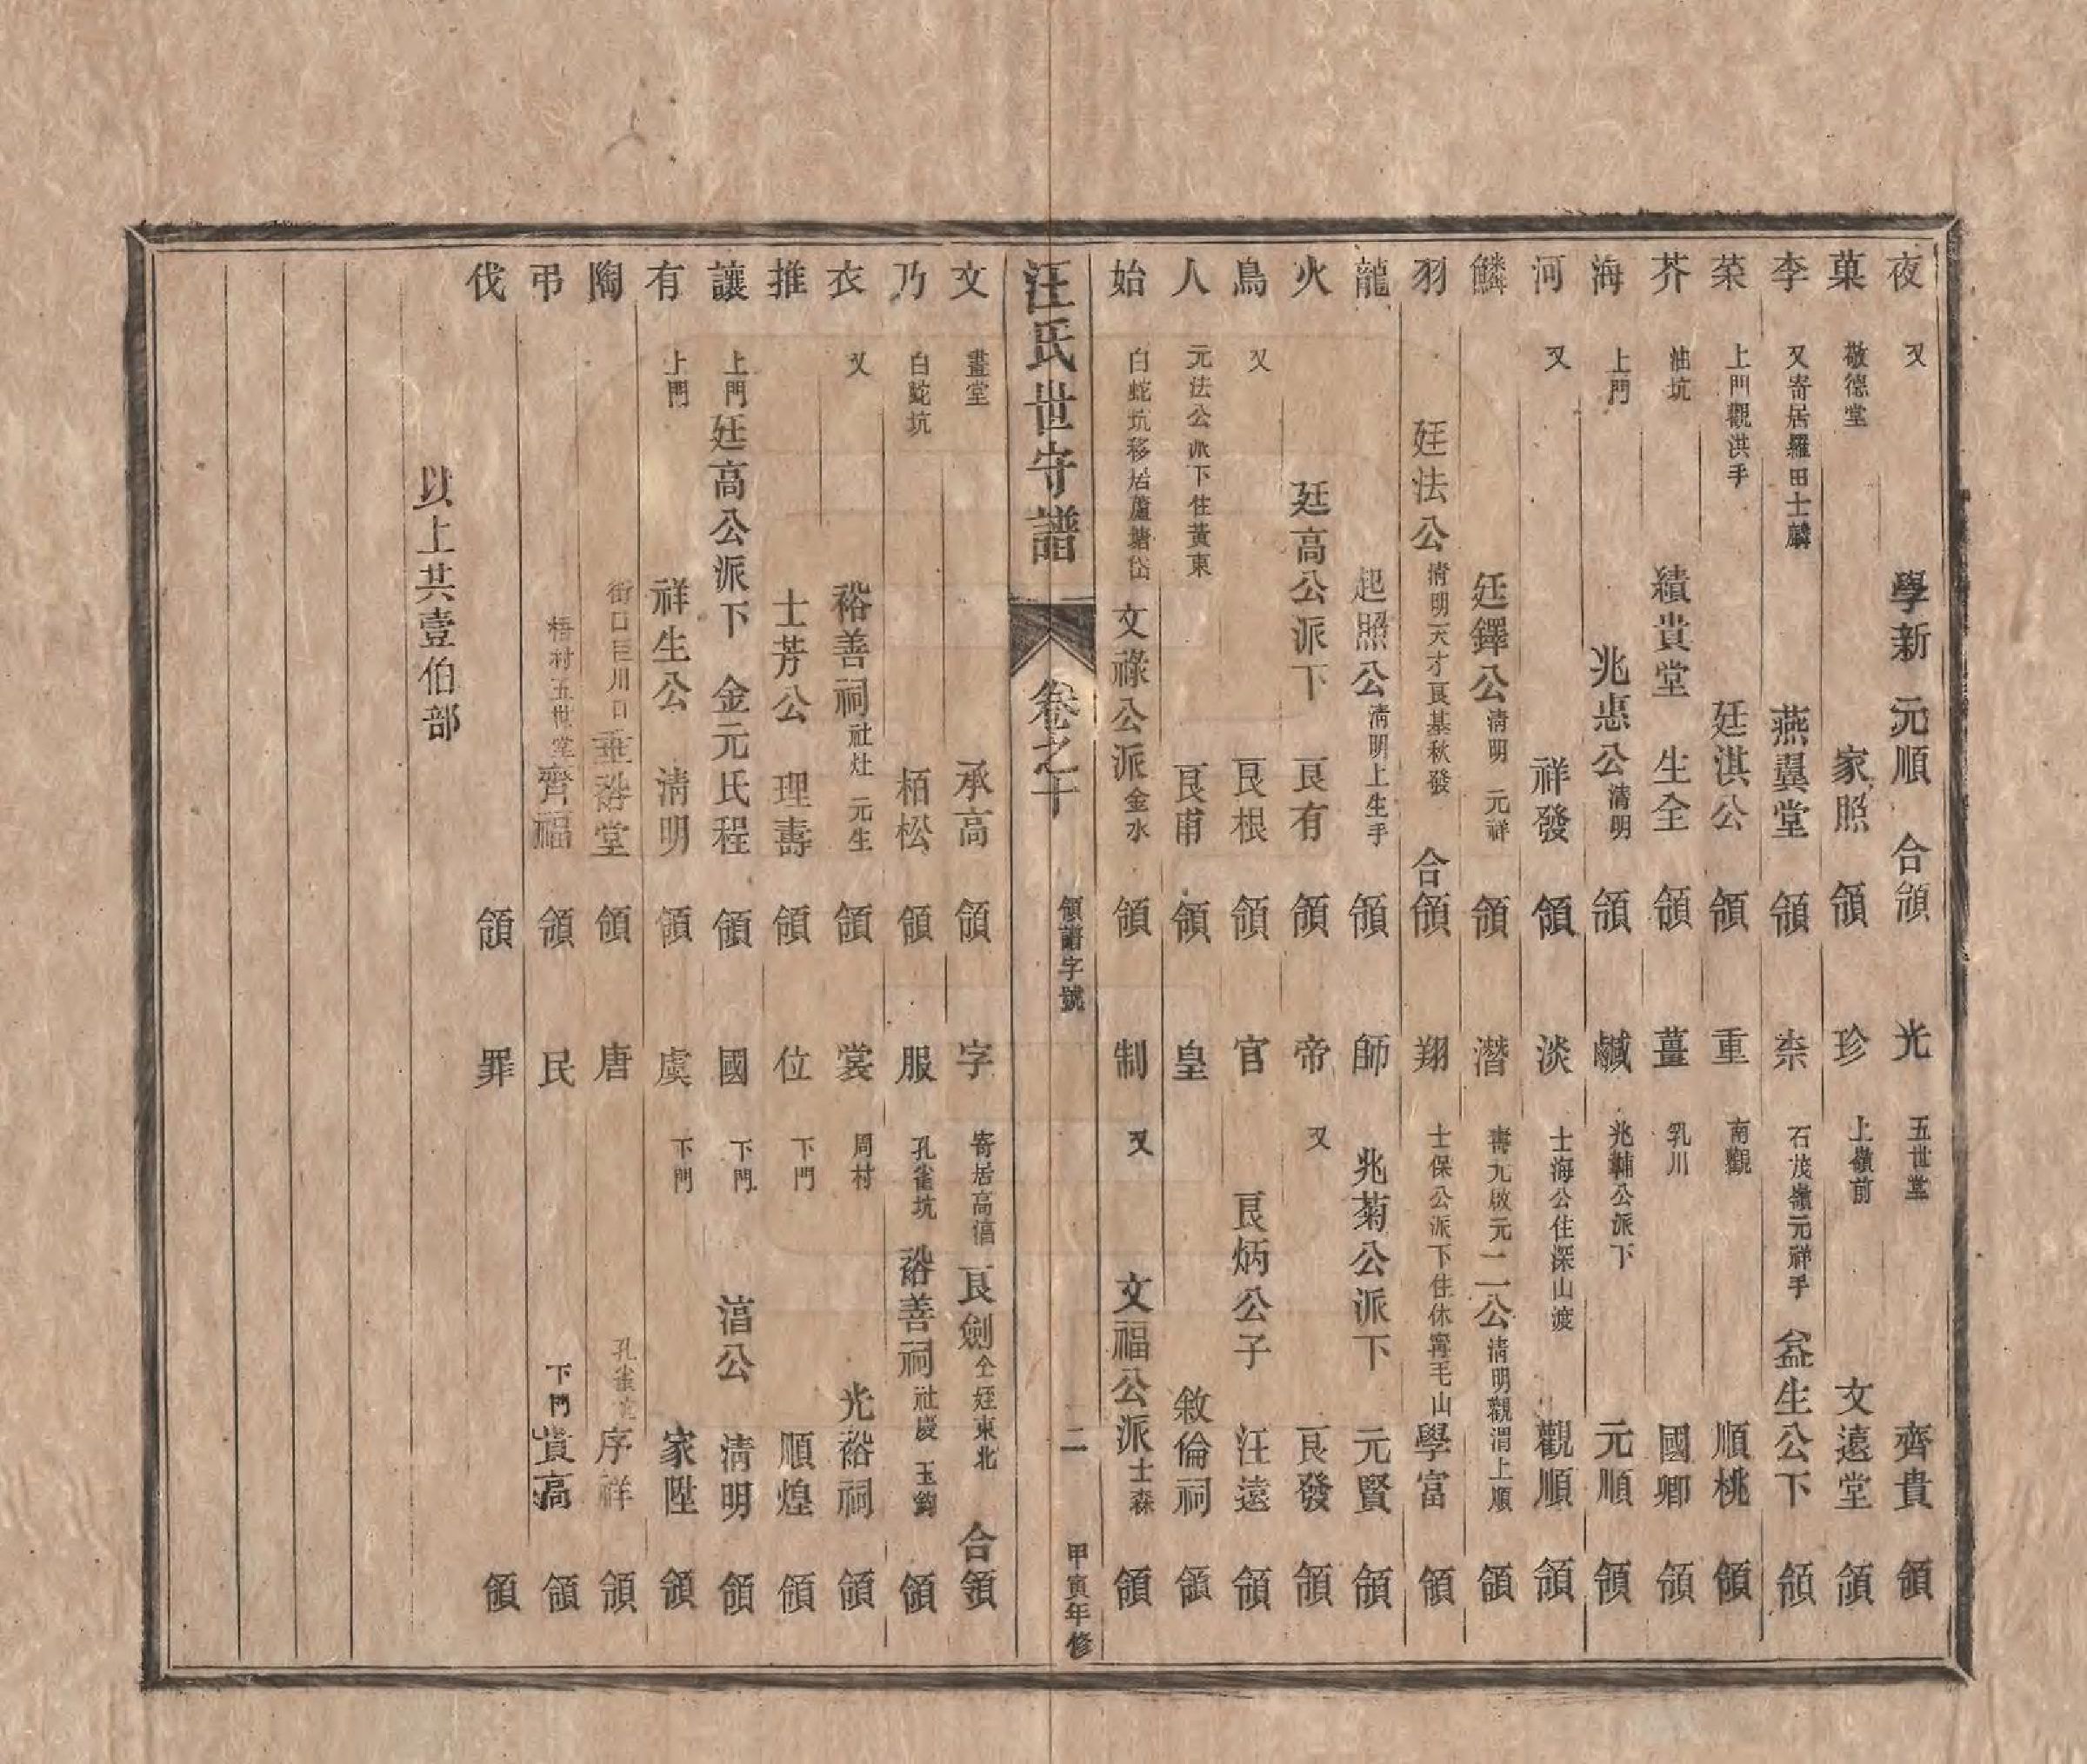 夜 又 學新 元順 合領 光 五世堂 齊貴 領
菓 敬德堂 家照 領 珍 上嶺前 文遠堂 領
李 又寄居羅田士麟 燕翼堂 領 柰 石茂嶺元祥手 益生公下 領
菜 上門觀洪手 廷淇公 領 重 南觀 順桃 領
芥 油坑 績貴堂 生全 領 薑 乳川 國卿 領
海 上門 兆惠公 清明 領 鹹 兆輔公派下 元順 領
河 又 祥發 領 淡 士海公住深山渡 觀順 領
鱗 廷鐸公 清明 元祥 領 潛 壽元啟元一二公 清明觀渭上順 領
羽 廷法公 清明天才艮基秋發 合領 翔 士保公派下住休寗毛山 學富 領
龍 起照公 清明上生手 領 師 兆菊公派下 元賢 領
火 廷高公派下 艮有 領 帝 又 艮發 領
鳥 又 艮根 領 官 艮炳公子 汪遠 領
人 元法公派下住黃東 艮甫 領 皇 敘倫祠 領
始 白蛇坑移居蘆塘岱 文祿公派 金水 領 制 又 文福公派 士森 領
汪氏世守譜 卷之十 領譜字號 二 甲寅年修
文 畫堂 承高 領 字 寄居高漘 艮劍 仝姪東北 合領
乃 白蛇坑 栢松 領 服 孔雀坑 裕善祠 社慶 玉鈞 領
衣 又 裕善祠 社灶 元生 領 裳 周村 光裕祠 領
推 士芳公 理壽 領 位 下門 順煌 領
讓 上門 廷高公派下 金元氏程 領 國 下門 湻公 清明 領
有 上門 祥生公 清明 領 虞 下門 家陞 領
陶 街口巨川口 垂裕堂 領 唐 孔雀 序祥 領
弔 梧村五世堂 齊福 領 民 下門 貴高 領
伐 領 罪 領
以上共壹伯部